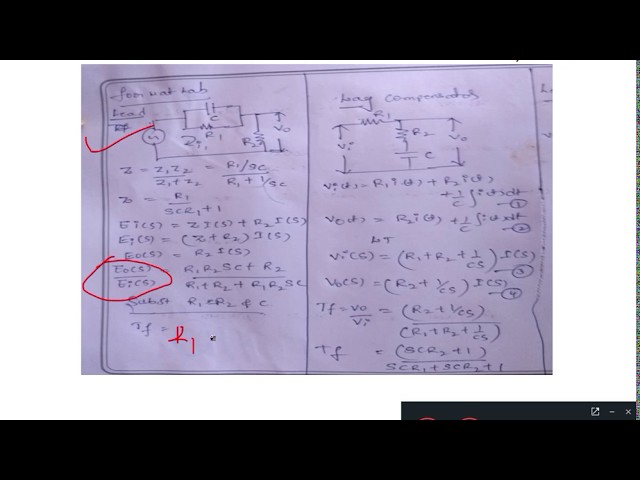 Lead
C
R1
Z
R2
Vo
Z = Z1Z2 / Z1+Z2 = R1/SC / R1+1/SC
Z = R1 / SCR1+1
Ei(S) = Z I(S) + R2 I(S)
Ei(S) = (Z+R2) I(S)
Eo(S) = R2 I(S)
Eo(S) / Ei(S) = R1R2SC+R2 / R1+R2+R1R2SC
Subst R1 & R2 & C
Tf = R1
Lag compensator
R1
R2
C
Vi
Vo
Vi(t) = R1 i(t) + R2 i(t) + 1/C ∫i(t)dt ①
Vo(t) = R2 i(t) + 1/C ∫i(t)dt ②
LT
Vi(S) = (R1+R2+1/CS) I(S) ③
Vo(S) = (R2+1/CS) I(S) ④
Tf = Vo/Vi = (R2+1/CS) / (R1+R2+1/CS)
Tf = (SCR2+1) / SCR1+SCR2+1